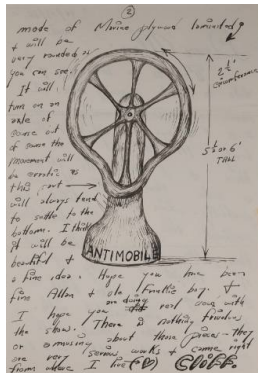 ②
made of Marine plywood laminated
& will be
very rounded as
you can see.
It will
turn on an
axle of
some sort
of course the
movement will
be erratic as
this part →
will always tend
to settle to the
bottom. I think
it will be
beautiful &
a fine idea. Hope you have been
fine Allan &
I hope you are doing very well with
the show. There is nothing frivolous
or amusing about these pieces - they
are very serious works & come right
from where I live (♥) Cliff.
2½'
circumference
5½' or 6'
TALL
ANTIMOBILE